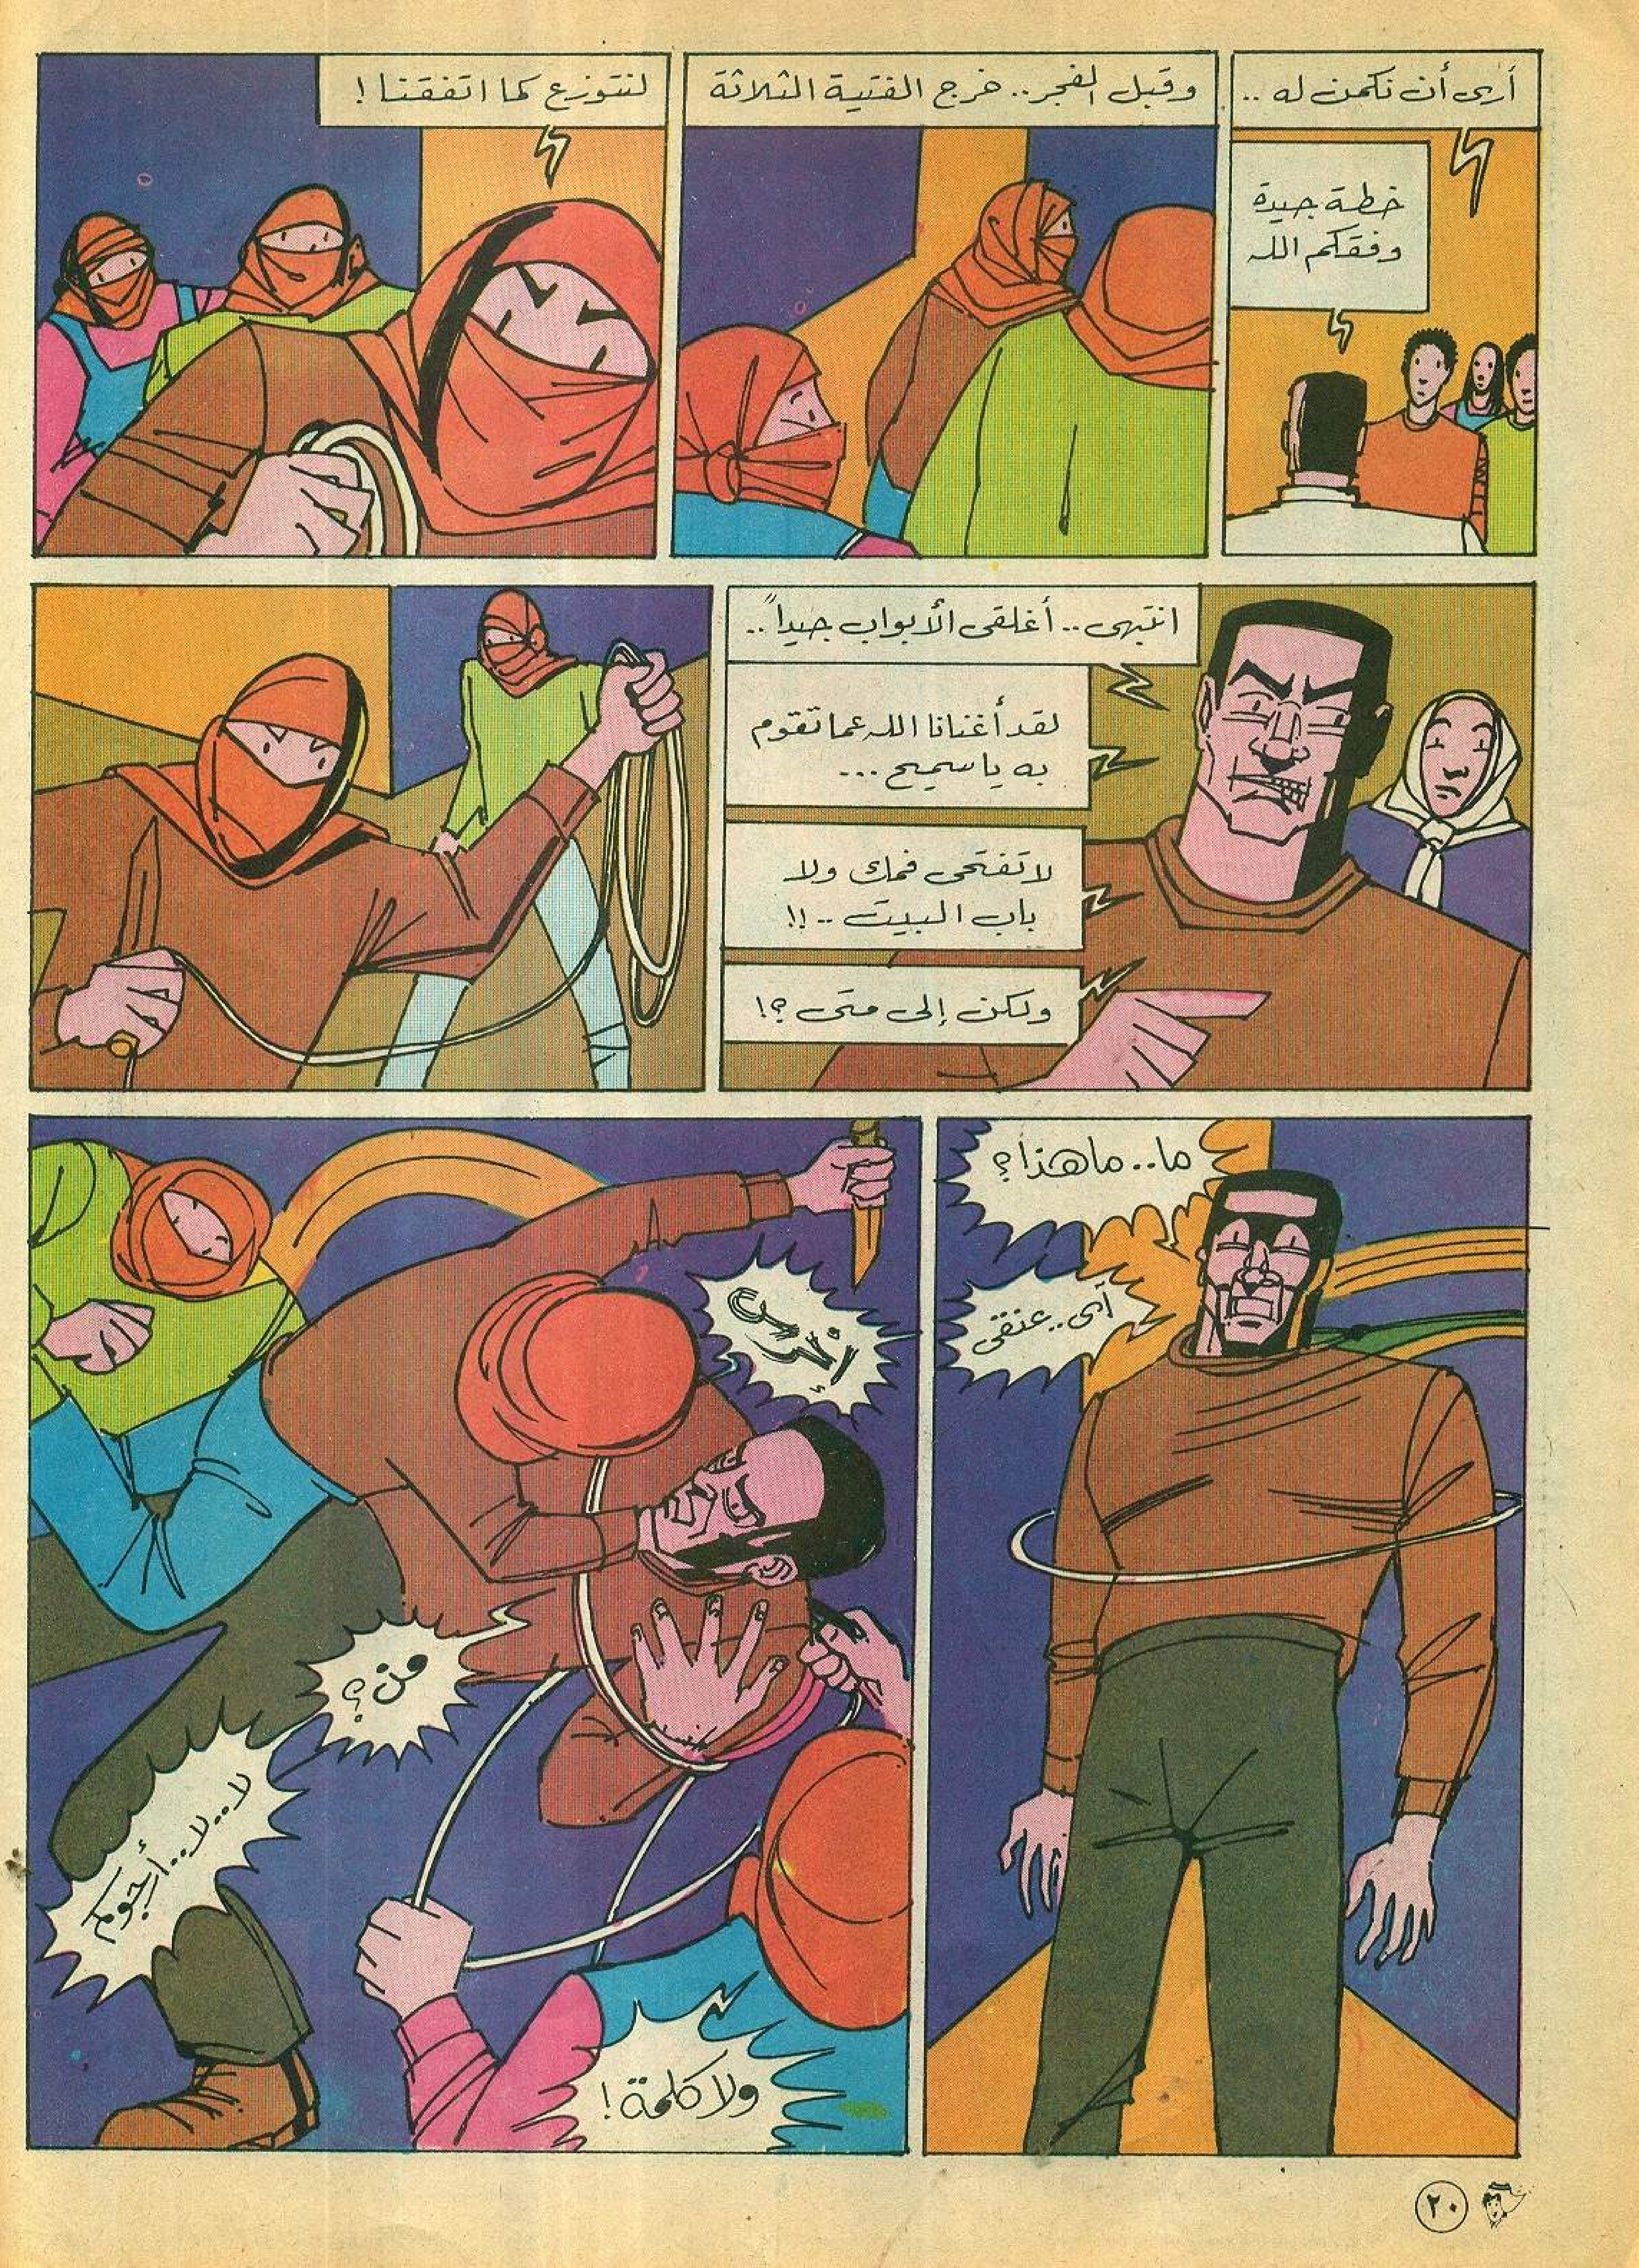 أرى أن نكمن له ..
خطة جيدة
وفقكم الله
وقبل الفجر.. خرج الفتية الثلاثة
لنتوزع كما اتفقنا !
انتبهى.. أغلقى الأبواب جيداً ..
لقد أغنانا الله عما تقوم
به يا سميح ...
لا تفتحى فمك ولا
باب البيت .. !!
ولكن إلى متى ؟!
ما.. ما هذا ؟
أى.. عنقى
إخرس
من ؟
لا.. لا.. أرجوكم
ولا كلمة !
٢٠